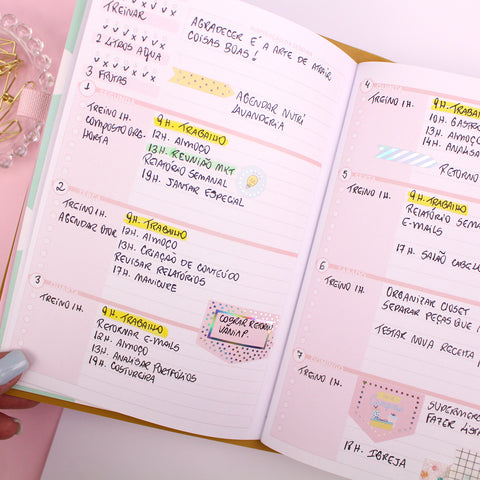 TREINAR
2 LITROS AGUA
3 FRUTAS
AGRADECER É A ARTE DE ATRAIR
COISAS BOAS!
AGENDAR NUTRI
LAVANDERIA
1
TREINO 1H.
COMPOSTO ORG.
HORTA
9H. TRABALHO
12H. ALMOÇO
13H. REUNIÃO MKT
RELATÓRIO SEMANAL
19H. JANTAR ESPECIAL
2
TREINO 1H.
AGENDAR DTOR
9H. TRABALHO
12H. ALMOÇO
13H. CRIAÇÃO DE CONTEÚDO
REVISAR RELATÓRIOS
17H. MANICURE
3
TREINO 1H.
9H. TRABALHO
RETORNAR E-MAILS
12H. ALMOÇO
13H. ANALISAR PORTFÓLIOS
19H. COSTUREIRA
COBRAR
VÂNIA P.
4
TREINO 1H.
9H. TRABA
10H. GASTR
13H. ALMOÇO
14H. ANALISA
RETORNO
5
SEXTA
TREINO 1H.
9H. TRABALHO
RELATÓRIO SEMA
E-MAILS
17H. SALÃO CABELO
6
SÁBADO
TREINO 1H.
ORGANIZAR CLOSET
SEPARAR PEÇAS QUE
TESTAR NOVA RECEITA
7
DOMINGO
TREINO 1H.
SUPERMER
FAZER LISTA
18H. IGREJA